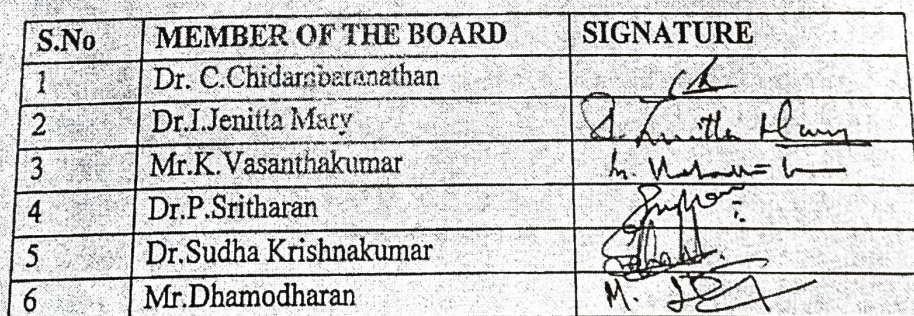 S.No MEMBER OF THE BOARD SIGNATURE
1 Dr. C.Chidambaranathan
2 Dr.I.Jenitta Mary I. Jenitta Mary
3 Mr.K.Vasanthakumar
4 Dr.P.Sritharan
5 Dr.Sudha Krishnakumar
6 Mr.Dhamodharan M.